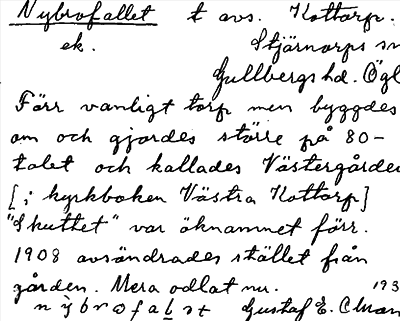 Nybrofallet t avs. Kottorp.
ek. Stjärnorps sn
Gullbergs hd. Ögl
Förr vanligt torp men byggdes
om och gjordes större på 80-
talet och kallades Västergården
[i kyrkboken Västra Kottorp]
"Skuttet" var öknamnet förr.
1908 avsöndrades stället från
gården. Mera odlat nu. 193
Gustaf E.